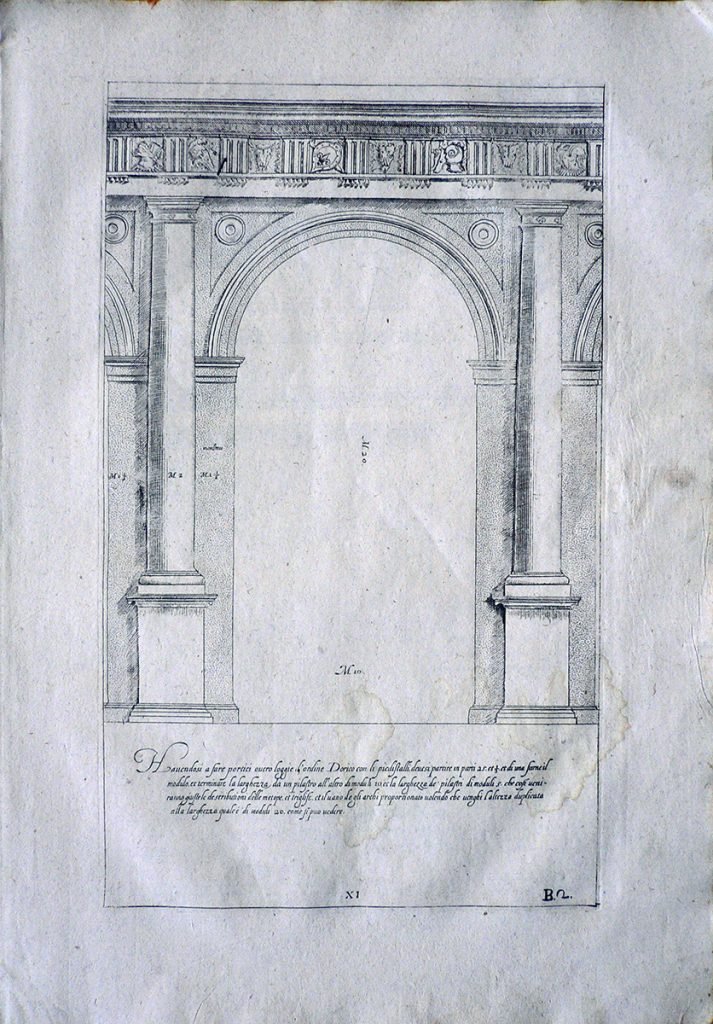 moduli
M 1 ½
M 2
M 1 ½
M 20
M 10
Havendosi a fare portici overo loggie d'ordine Dorico con li piedistalli, devesi partire in parti 25 et ⅓ et di una farne il
modulo, et terminare la larghezza da un pilastro all'altro di moduli 10 et la larghezza de pilastri di moduli 5. che cosi veni-
ranno giuste le destributioni delle metope, et triglifi, et il vano degli archi proportionato volendo che venghi l'altezza duplicata
alla larghezza quale è di moduli 20. come si può vedere.
XI
B.2.